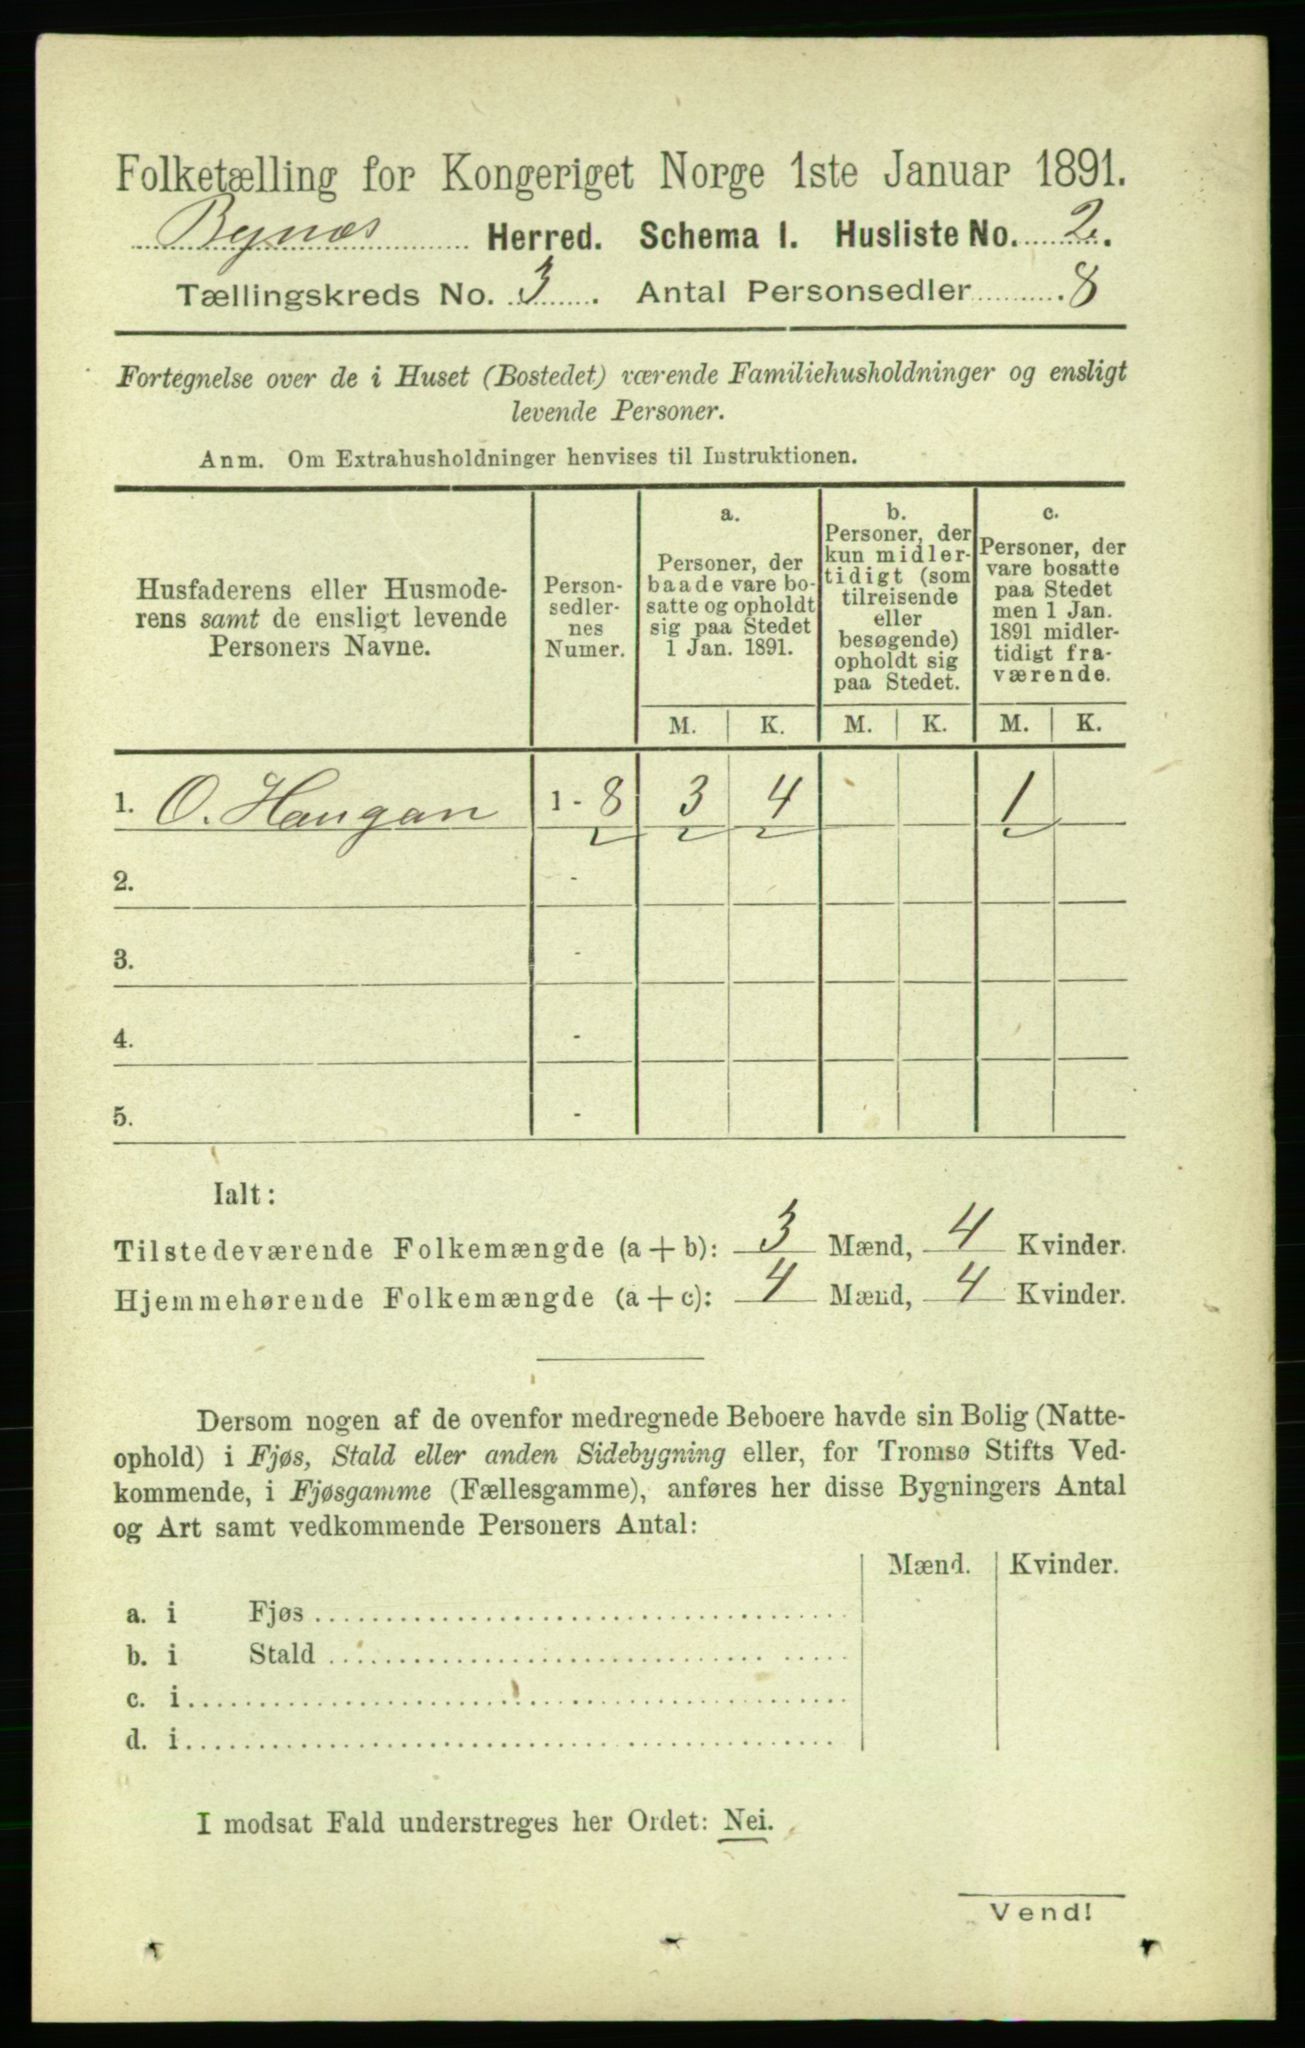 Folketælling for Kongeriget Norge 1ste Januar 1891.
Bynæs Herred. Schema I. Husliste No. 2.
Tællingskreds No. 3. Antal Personsedler 8
Fortegnelse over de i Huset (Bostedet) værende Familiehusholdninger og ensligt
levende Personer.
Anm. Om Extrahusholdninger henvises til Instruktionen.
Husfaderens eller Husmode-
rens samt de ensligt levende
Personers Navne.
Person-
sedler-
nes
Numer.
a.
Personer, der
baade vare bo-
satte og opholdt
sig paa Stedet
1 Jan. 1891.
b.
Personer, der
kun midler-
tidigt (som
tilreisende
eller
besøgende)
opholdt sig
paa Stedet.
c.
Personer, der
vare bosatte
paa Stedet
men 1 Jan.
1891 midler-
tidigt fra-
værende.
M. K. M. K. M. K.
1. O. Haugan 1 - 8 3 4 1
2. -
3. -
4. -
5. -
Ialt:
Tilstedeværende Folkemængde (a + b): 3 Mænd, 4 Kvinder.
Hjemmehørende Folkemængde (a + c): 4 Mænd, 4 Kvinder.
Dersom nogen af de ovenfor medregnede Beboere havde sin Bolig (Natte-
ophold) i Fjøs, Stald eller anden Sidebygning eller, for Tromsø Stifts Ved-
kommende, i Fjøsgamme (Fællesgamme), anføres her disse Bygningers Antal
og Art samt vedkommende Personers Antal:
Mænd. Kvinder.
a. i Fjøs
b. i Stald
c. i
d. i
I modsat Fald understreges her Ordet: Nei.
Vend!